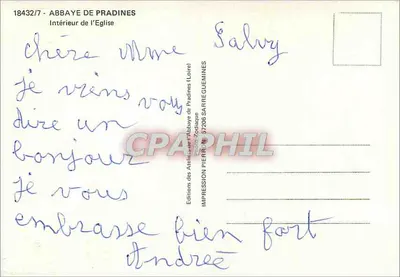 18432/7 - ABBAYE DE PRADINES
Intérieur de l'Eglise
chère Mme Salvy
je viens vous
dire un
bonjour
je vous
embrasse bien fort
Andrée
Editions des Ateliers de l'Abbaye de Pradines (Loire)
Zodiaque
IMPRESSION PIERRON 57206 SARREGUEMINES
CPAPHIL